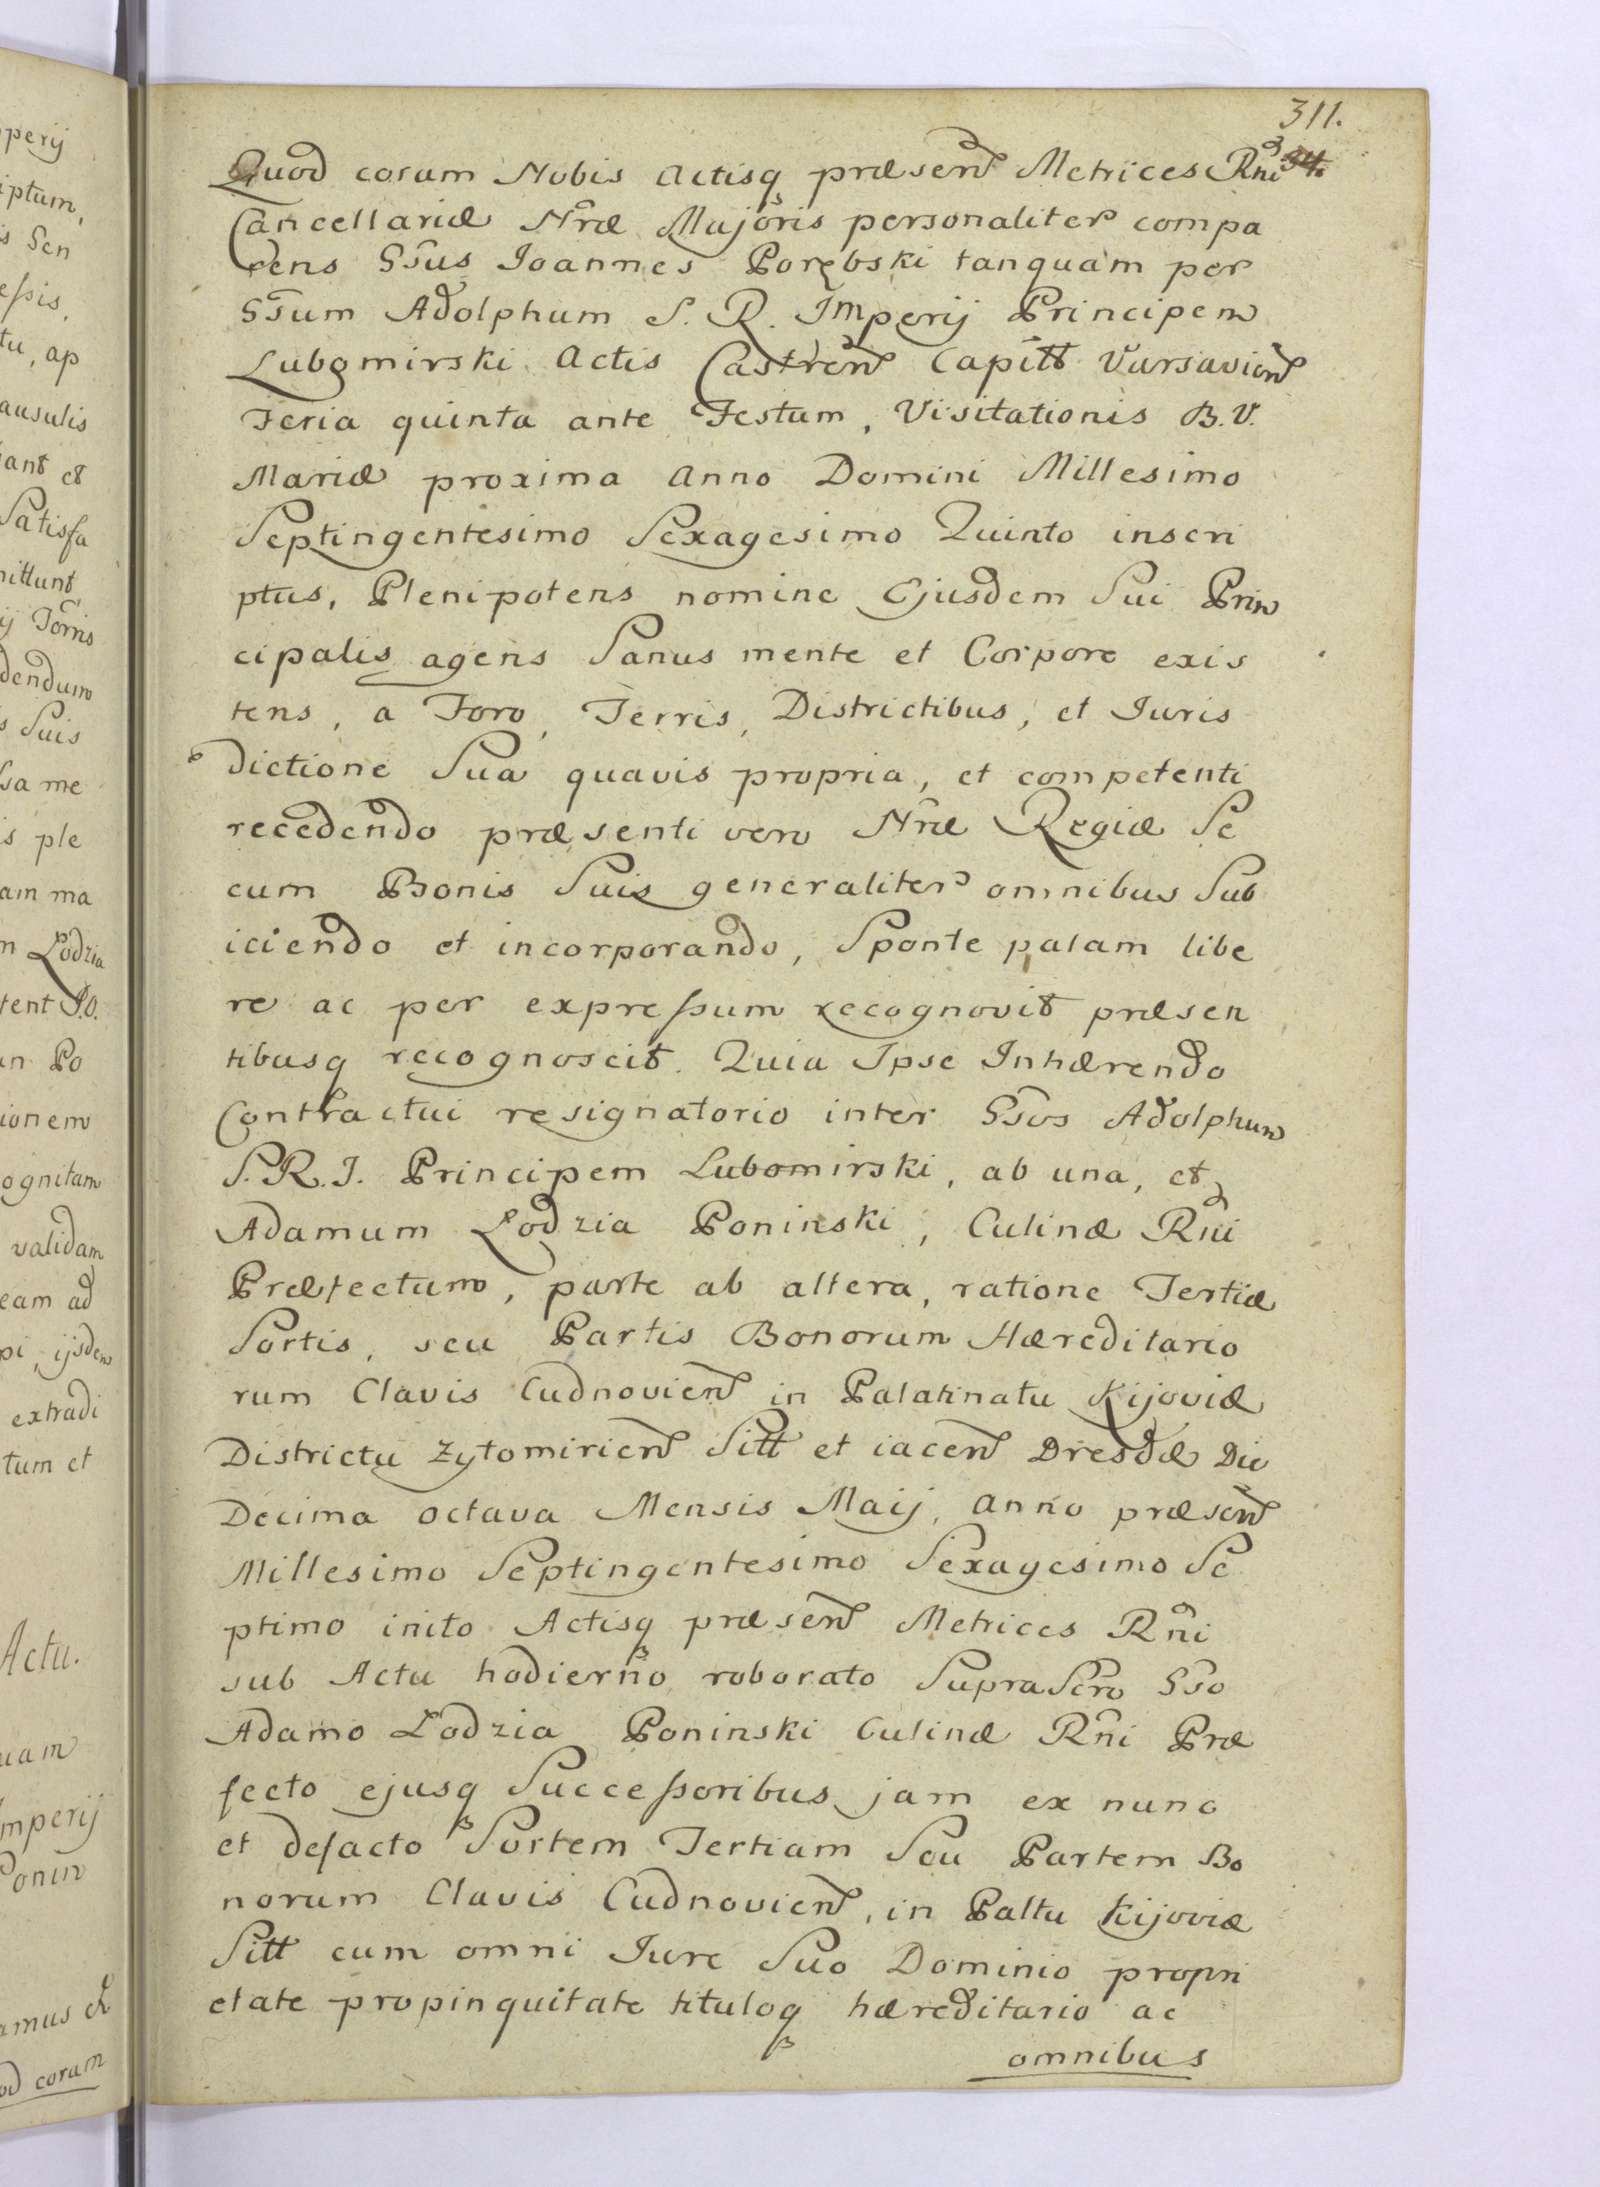 311.
Quod coram Nobis Actisq præsen Metrices Rni
Cancellariæ Nræ Majoris personaliter compa
rens Gsus Joannes Porębski tanquam per
Gsum Adolphum S. R. Imperij Principem
Lubomirski Actis Castren Capitt Varsavien
Feria quinta ante Festum, Visitationis B. V.
Mariæ proxima Anno Domini Millesimo
Septingentesimo Sexagesimo Quinto inscri
ptus, Plenipotens nomine Ejusdem Sui Prin
cipalis agens Sanus mente et Corpore exis
tens, a Foro, Terris, Districtibus, et Juris
dictione Sua quavis propria, et competenti
recedendo præsenti vero Nræ Regiæ Se
cum Bonis Suis generaliter omnibus Sub
iciendo et incorporando, Sponte palam libe
re ac per expressum recognovit præsen
tibusq recognoscit. Quia Ipse Inhærendo
Contractui resignatorio inter Gsos Adolphum
S. R. I. Principem Lubomirski, ab una, et
Adamum Łodzia Poninski, Culinæ Rni
Præfectum, parte ab altera, ratione Tertiæ
Sortis, seu Partis Bonorum Hæreditario
rum Clavis Cudnovien in Palatinatu Kijoviæ
Districtu Zytomirien Sitt et iacen Dresdæ Die
Decima octava Mensis Maij, anno præsen
Millesimo Septingentesimo Sexagesimo Se
ptimo inito Actisq præsen Metrices Rni
sub Actu hodierno roborato SupraScro Gso
Adamo Łodzia Poninski Culinæ Rni Præ
fecto ejusq Successoribus jam ex nunc
et defacto Sortem Tertiam Seu Partem Bo
norum Clavis Cudnovien, in Paltu Kijoviæ
Sitt cum omni Jure Suo Dominio propri
etate propinquitate tituloq hæreditario ac
omnibus